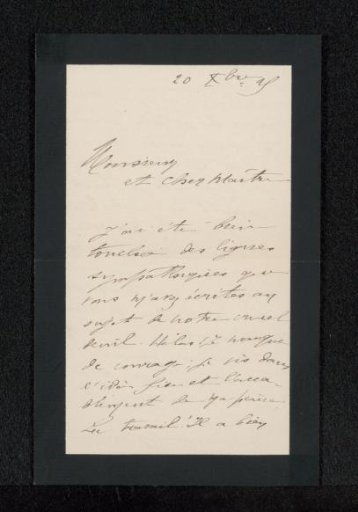 20 Xbre 95
Monsieur
et cher Maître
J'ai été bien
touchée des lignes
sympathiques que
vous m'avez écrites au
sujet de notre cruel
deuil. Hélas, je manque
de courage, je vis dans
l'idée fixe et l'acca-
blement de ma peine
Le travail! Il a bien